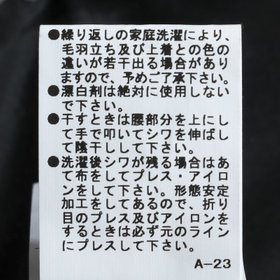 ●繰り返しの家庭洗濯により、
毛羽立ち及び上着との色の
違いが若干出る場合があり
ますので、予めご了承下さい。
●漂白剤は絶対に使用しない
で下さい。
●干すときは腰部分を上にし
て手で叩いてシワを伸ばし
て陰干しして下さい。
●洗濯後シワが残る場合はあ
て布をしてプレス・アイロ
ンをして下さい。形態安定
加工をしてあるので、折り
目のプレス及びアイロンを
するときは必ず元のライン
にプレスして下さい。
A-23